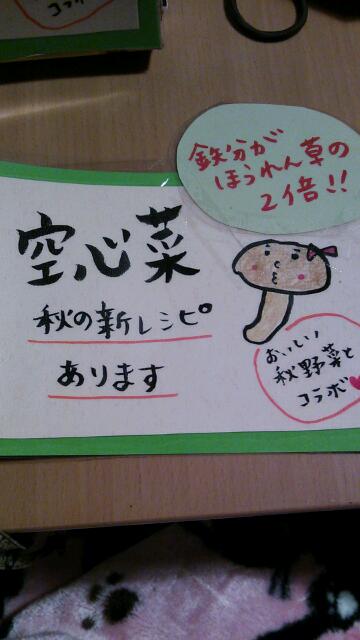 コラボ
鉄分が
ほうれん草の
2倍!!
空心菜
秋の新レシピ
あります
おいしい
秋野菜と
コラボ♥